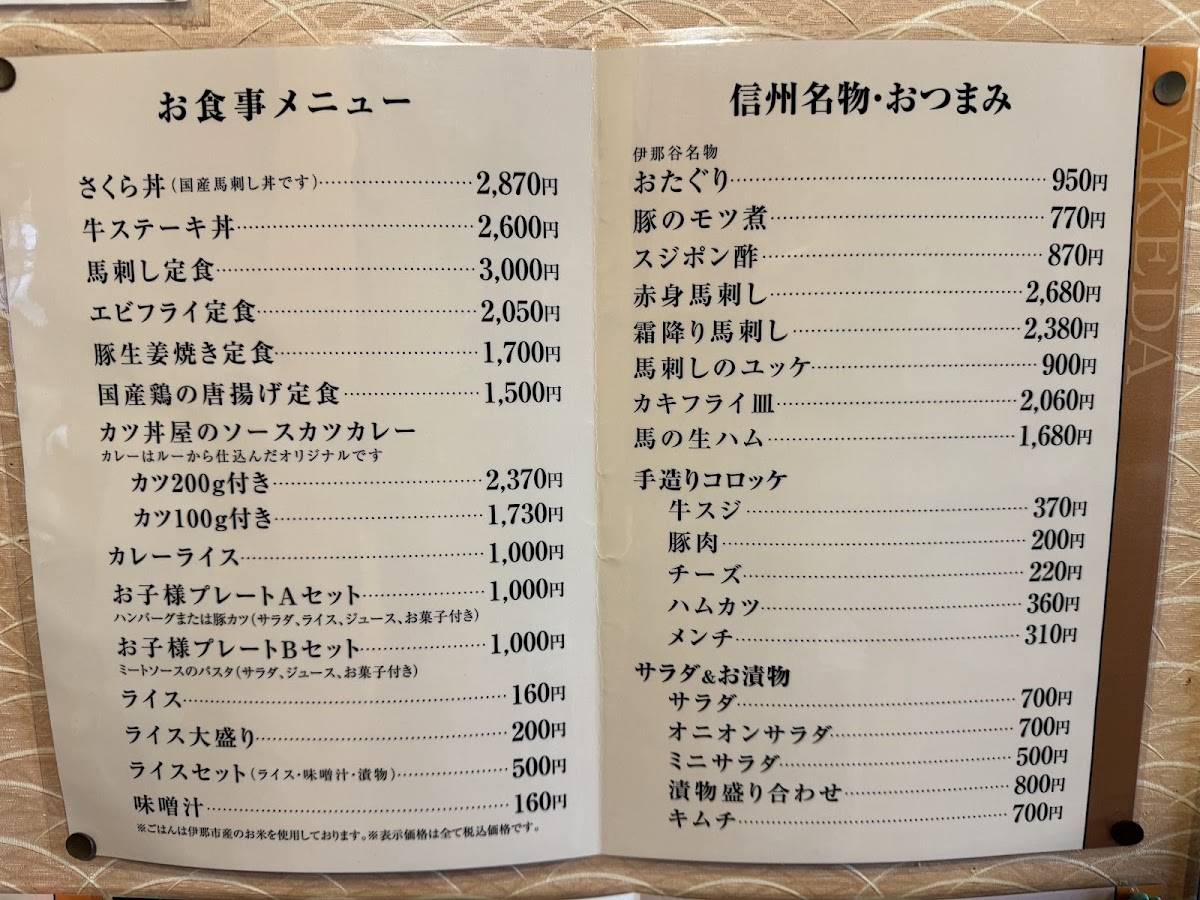 お食事メニュー
さくら丼(国産馬刺し丼です)…2,870円
牛ステーキ丼…2,600円
馬刺し定食…3,000円
エビフライ定食…2,050円
豚生姜焼き定食…1,700円
国産鶏の唐揚げ定食…1,500円
カツ丼屋のソースカツカレー
カレーはルーから仕込んだオリジナルです
カツ200g付き…2,370円
カツ100g付き…1,730円
カレーライス…1,000円
お子様プレートAセット…1,000円
ハンバーグまたは豚カツ(サラダ、ライス、ジュース、お菓子付き)
お子様プレートBセット…1,000円
ミートソースのパスタ(サラダ、ジュース、お菓子付き)
ライス…160円
ライス大盛り…200円
ライスセット(ライス・味噌汁・漬物)…500円
味噌汁…160円
※ごはんは伊那市産のお米を使用しております。※表示価格は全て税込価格です。
信州名物・おつまみ
伊那谷名物
おたぐり…950円
豚のモツ煮…770円
スジポン酢…870円
赤身馬刺し…2,680円
霜降り馬刺し…2,380円
馬刺しのユッケ…900円
カキフライ皿…2,060円
馬の生ハム…1,680円
手造りコロッケ
牛スジ…370円
豚肉…200円
チーズ…220円
ハムカツ…360円
メンチ…310円
サラダ&お漬物
サラダ…700円
オニオンサラダ…700円
ミニサラダ…500円
漬物盛り合わせ…800円
キムチ…700円
TAKEDA